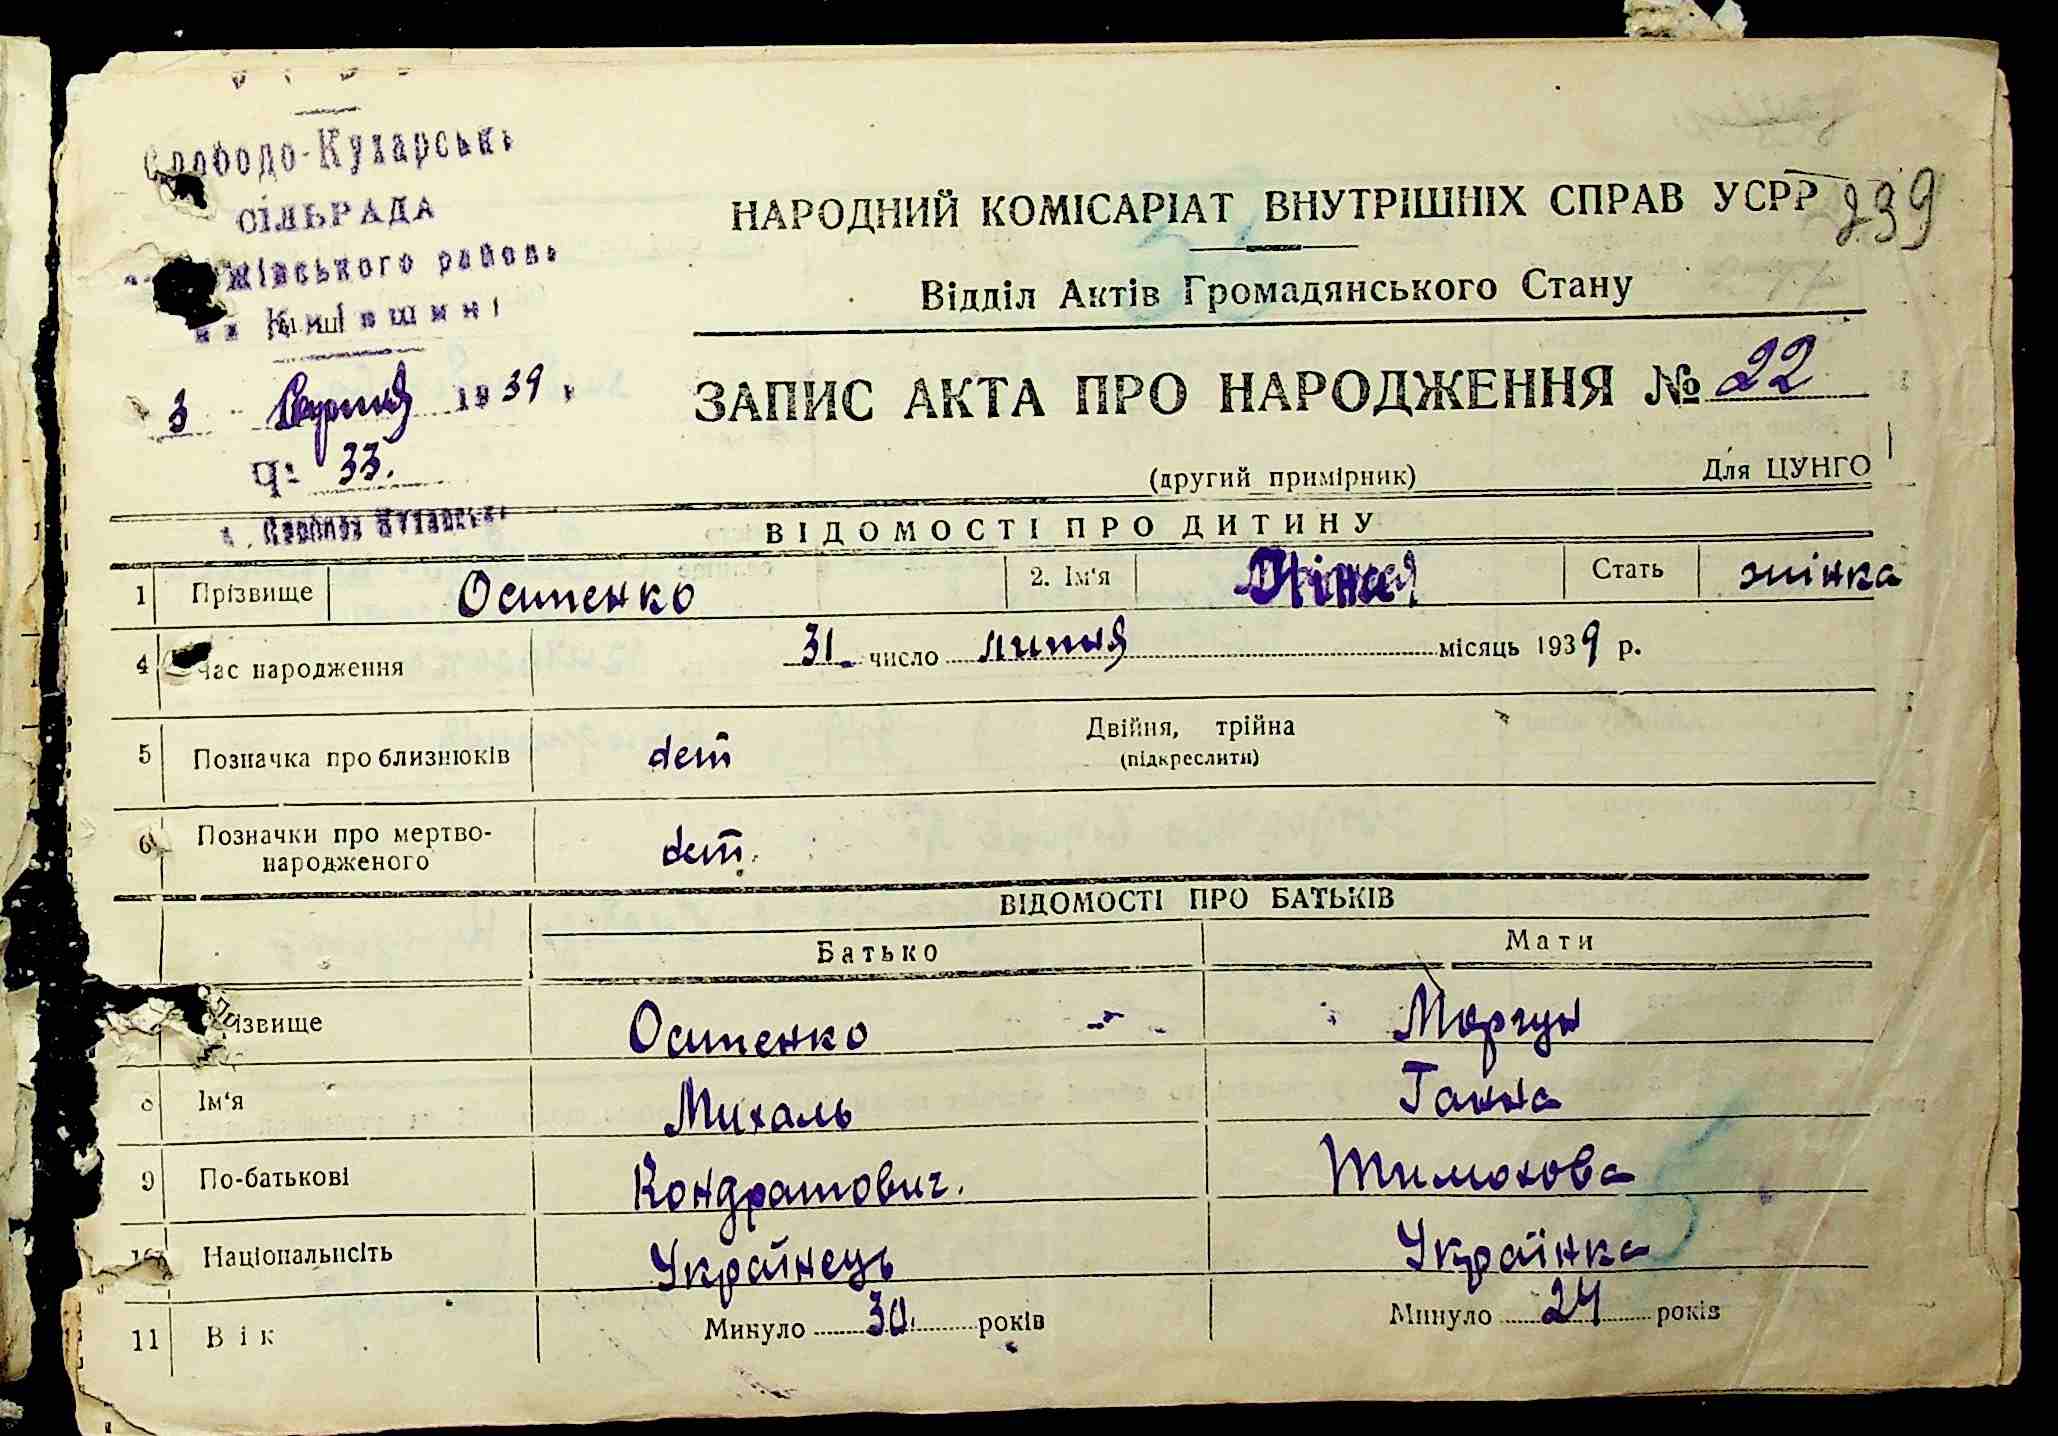 Слободо-Кухарськ
СІЛЬРАДА
району
3 Серпня 1939 р.
Ч. 33.
НАРОДНИЙ КОМІСАРІАТ ВНУТРІШНІХ СПРАВ УСРР 239
Відділ Актів Громадянського Стану
ЗАПИС АКТА ПРО НАРОДЖЕННЯ № 22
(другий примірник) Для ЦУНГО
ВІДОМОСТІ ПРО ДИТИНУ
1 Прізвище Осипенко 2. Ім'я Стать жінка
4 Час народження 31 число липня місяць 1939 р.
5 Позначка про близнюків Двійня, трійна
(підкреслити)
6 Позначки про мертво-
народженого
ВІДОМОСТІ ПРО БАТЬКІВ
Батько Мати
Прізвище Осипенко Моргун
8 Ім'я Михаль Ганна
9 По-батькові Кондратович. Тимохова
10 Національність Українець Українка
11 Вік Минуло 30 років Минуло 24 років